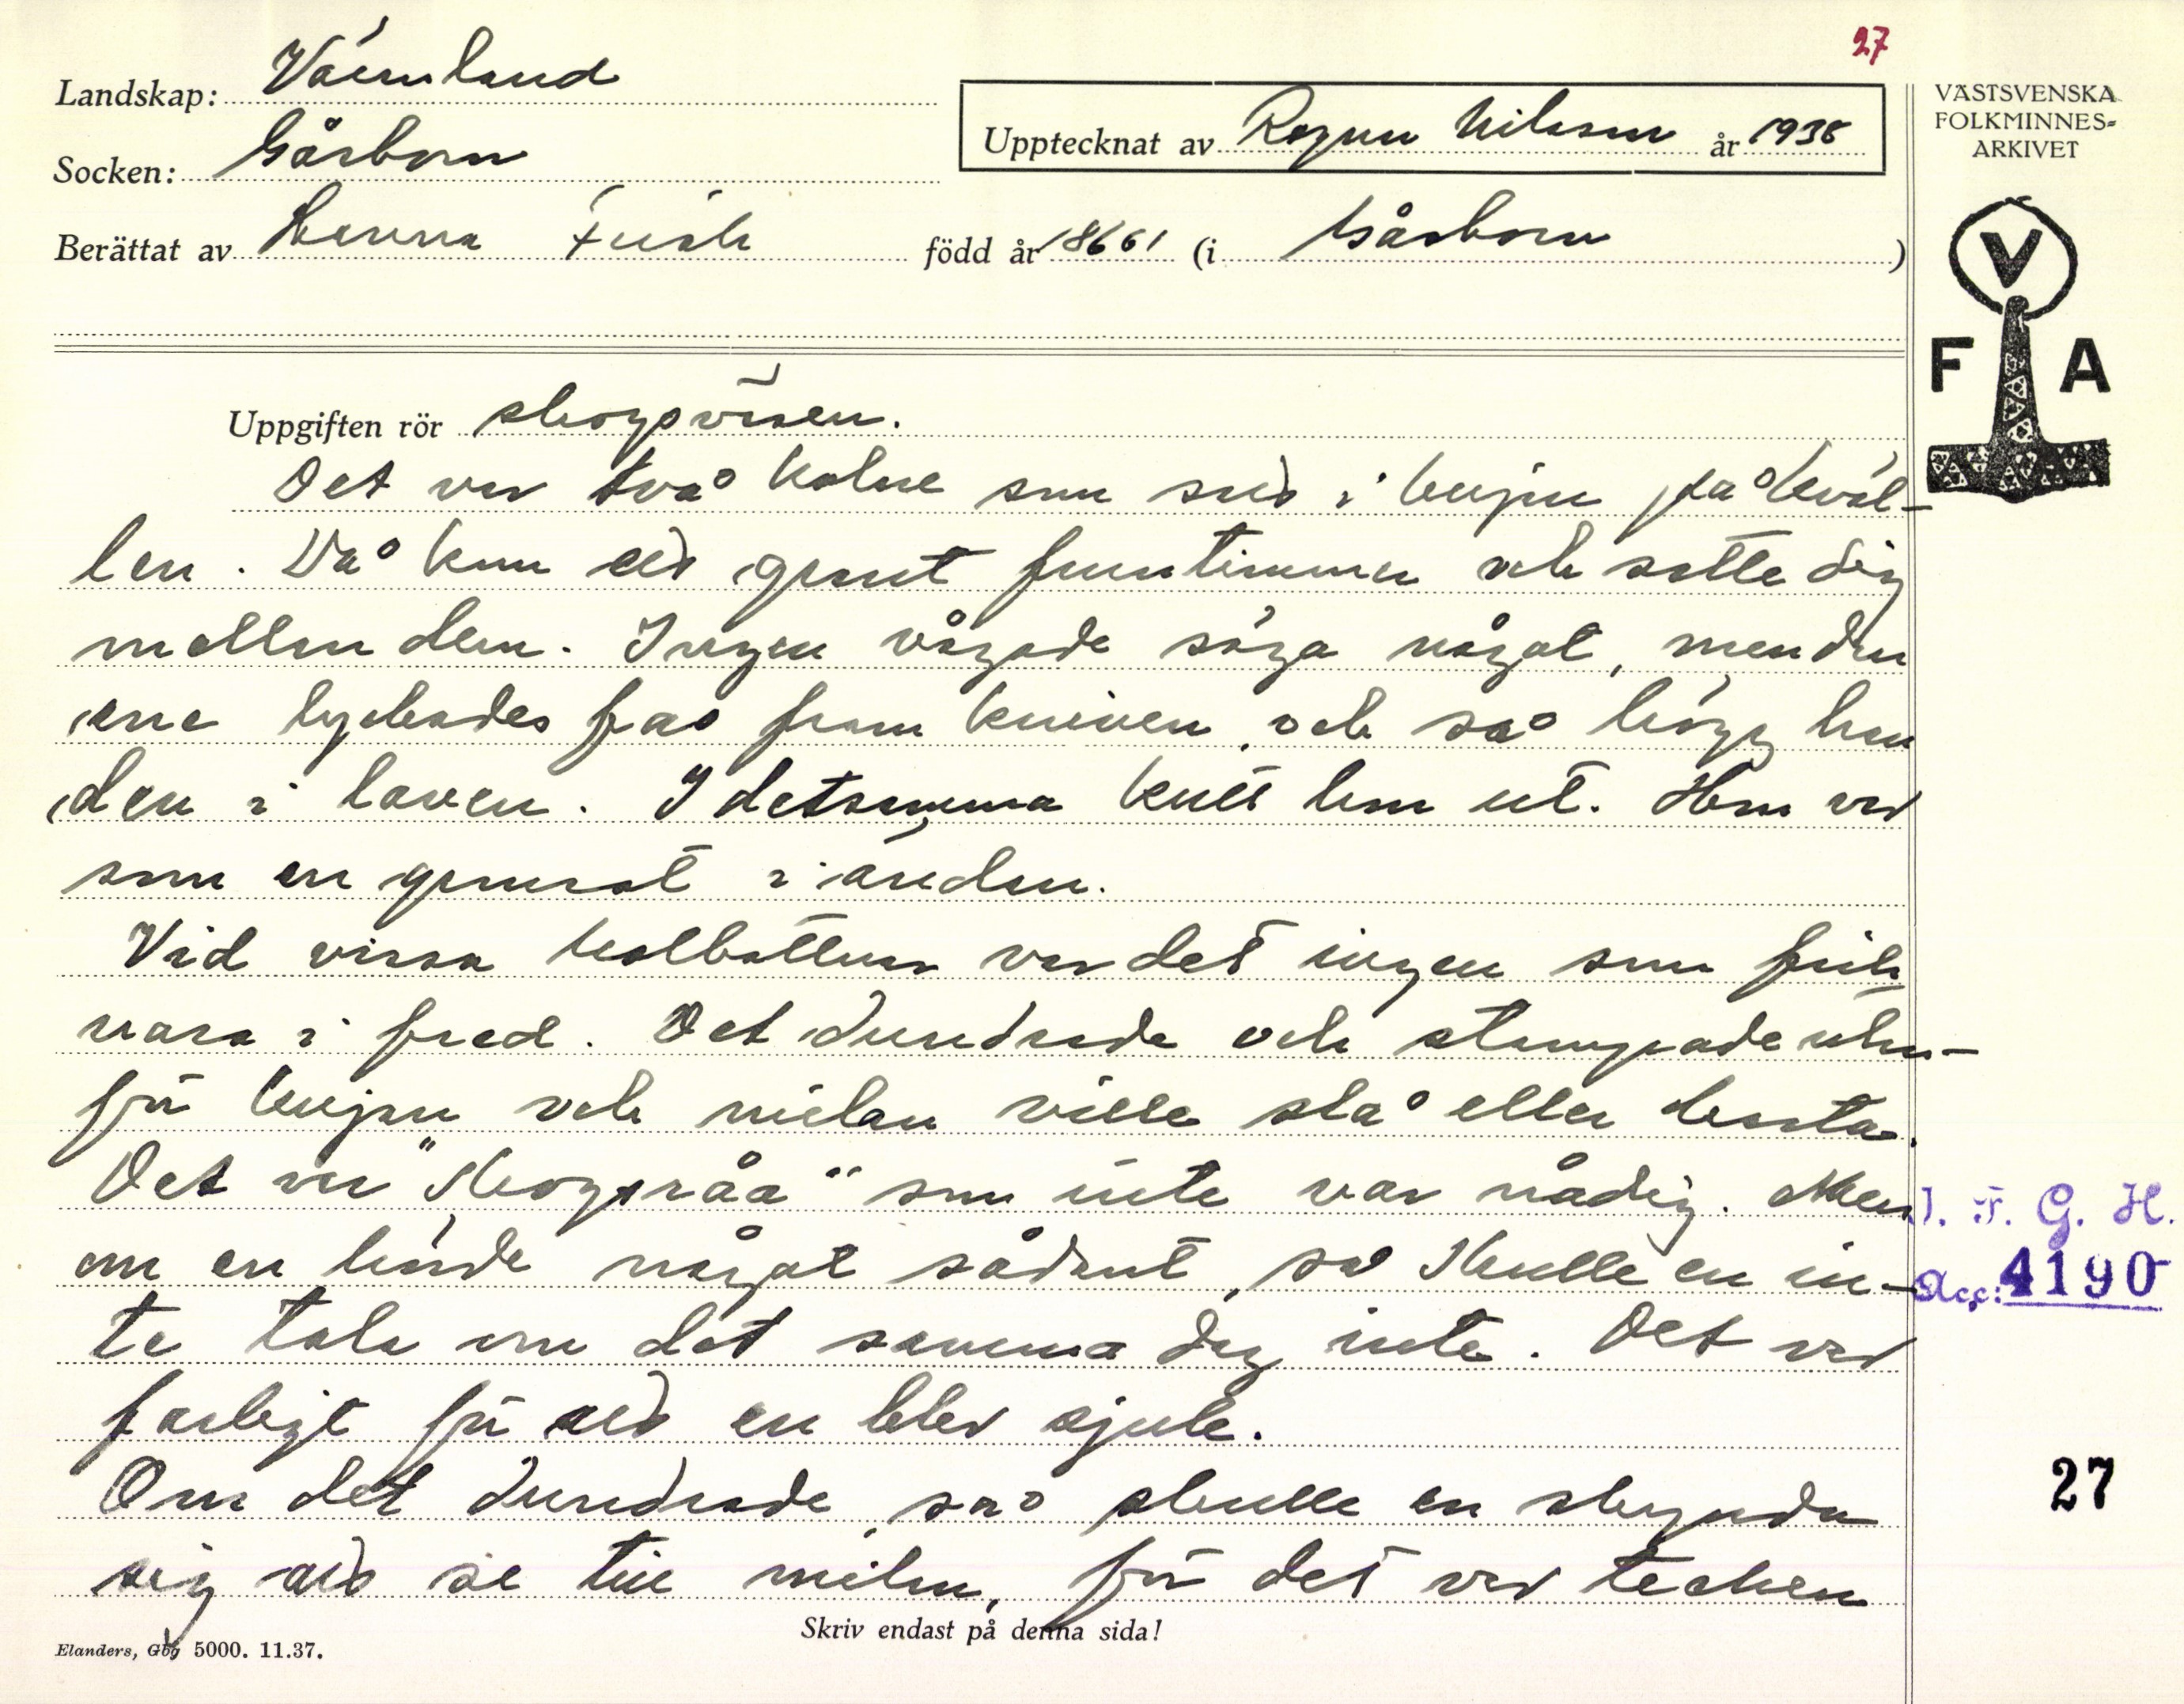 27
Landskap: Värmland
Socken: Gåsborn
Upptecknat av Ragnar Nilsson år 1938
VÄSTSVENSKA
FOLKMINNES-
ARKIVET
Berättat av Hanna Frisk född år 1861 (i Gåsborn)
V
F A
Uppgiften rör skogsväsen.
Det var två kolare som satt i kojan på kväl-
len. Då kom ett grant fruntimmer och satte sig
mellan dem. Ingen vågade säga något, men den
ene lyckades få fram kniven, och så högg han
den i laven. I detsamma kilt hon ut. Hon var
som en granrot i änden.
Vid vissa kolbottnar var det ingen som fick
vara i fred. Det dundrade och stampade utan-
för kojan och milan ville slå eller kasta.
Det var "skogsråa" som inte var nådig. Men
om en hörde något sådant, så skulle en in-
te tala om det samma dag inte. Det var
farligt för att en blev sjuk.
Om det dundrade, så skulle en skynda
sig att se till milan, för det var tecken
I. F. G. H.
Acc: 4190
27
Skriv endast på denna sida!
Elanders, Gbg 5000. 11.37.